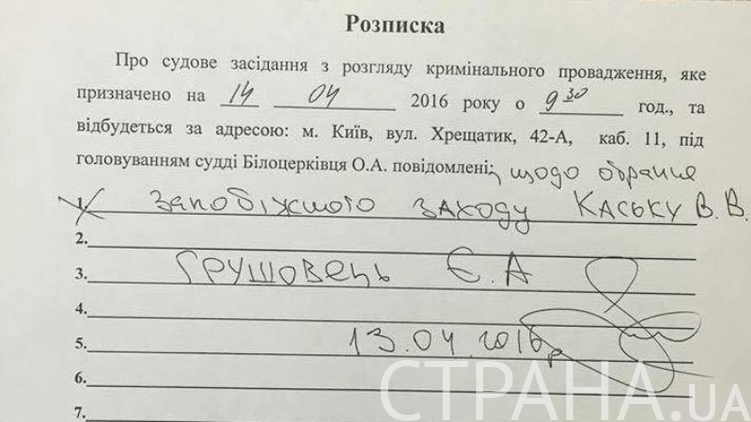 Розписка
Про судове засідання з розгляду кримінального провадження, яке
призначено на 14 04 2016 року о 9 30 год., та
відбудеться за адресою: м. Київ, вул. Хрещатик, 42-А, каб. 11, під
головуванням судді Білоцерківця О.А. повідомлені: щодо обрання
1. запобіжного заходу Каську В.В.
2.
3. Грушовець Є.А
4.
5. 13.04.2016р
6.
7.
СТРАНА.UA